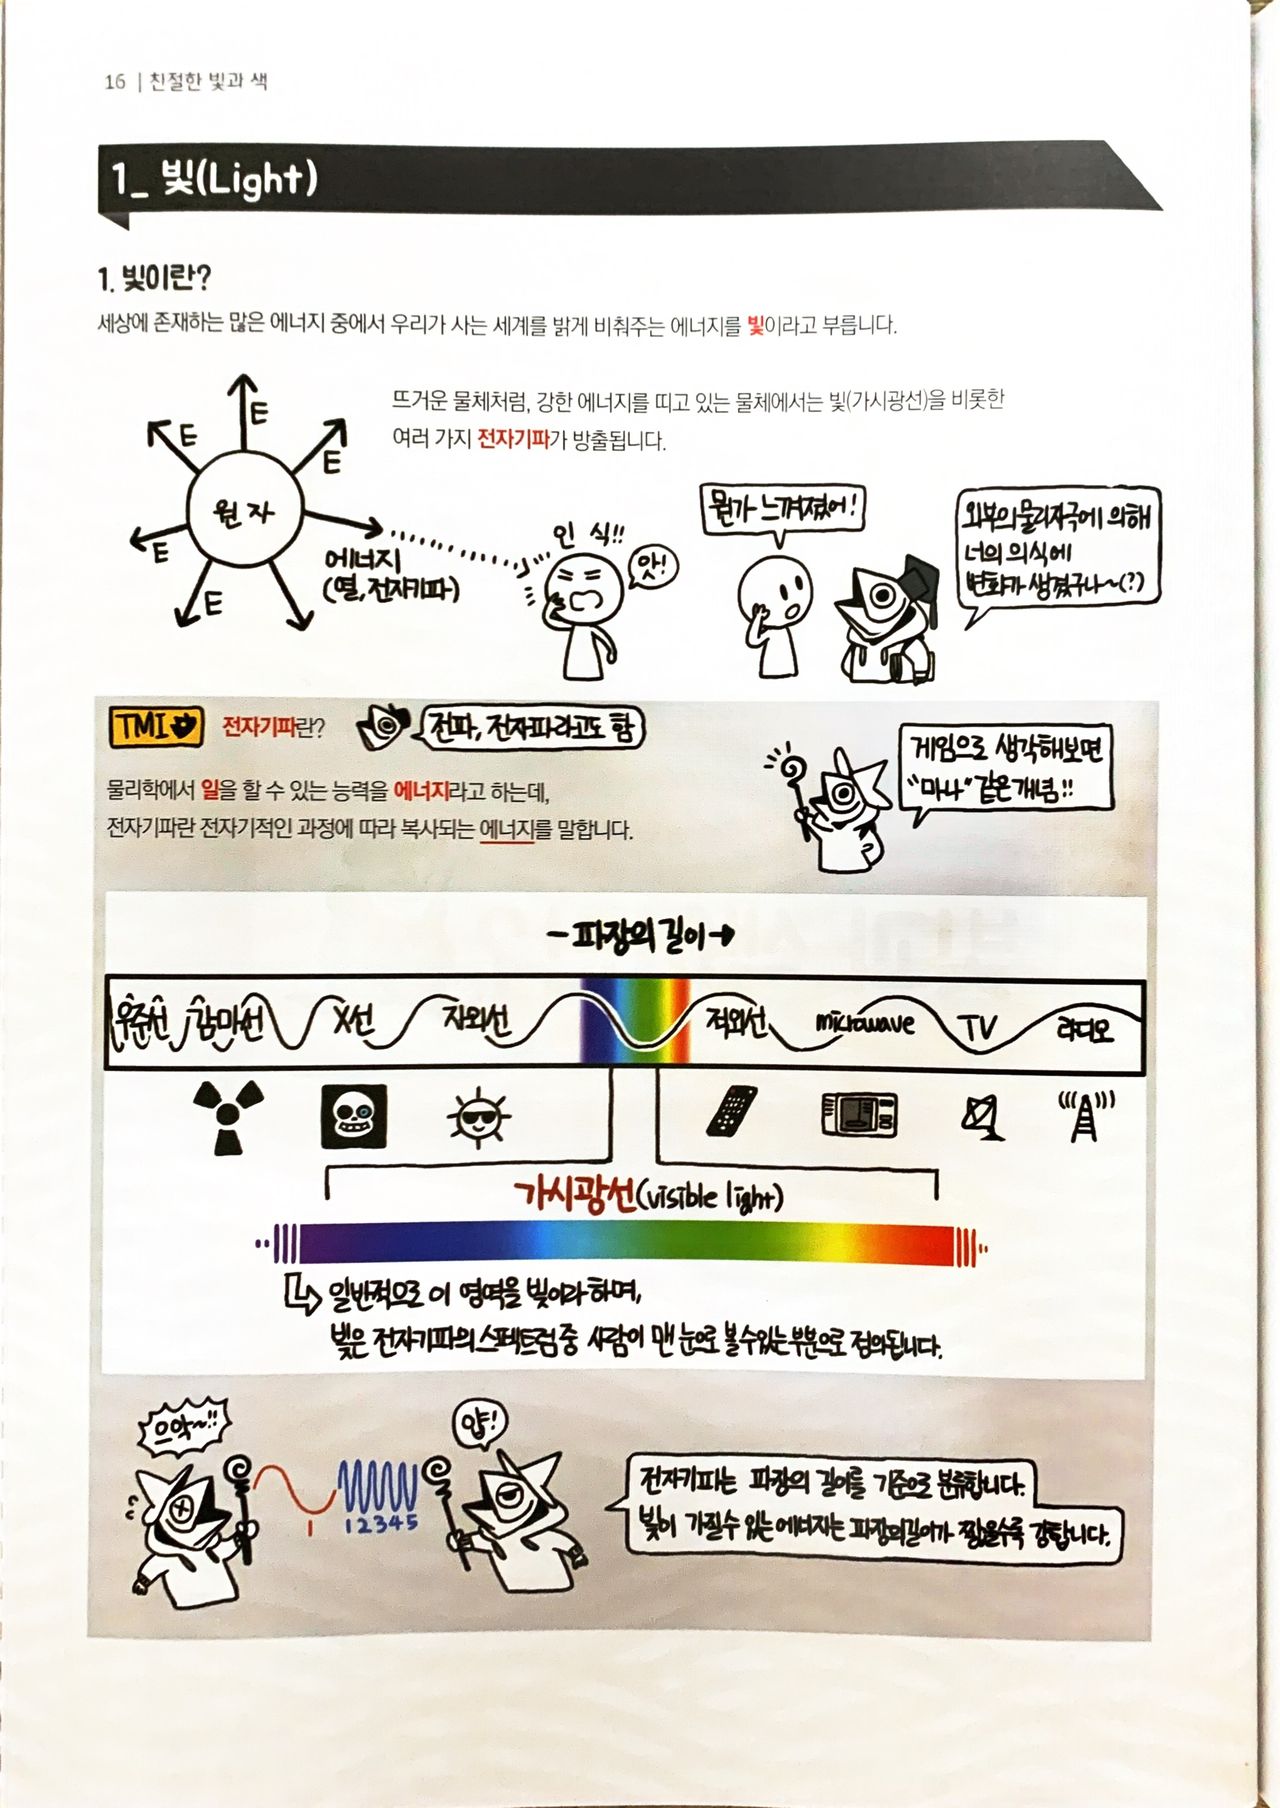 16 | 친절한 빛과 색
1_ 빛(Light)
1. 빛이란?
세상에 존재하는 많은 에너지 중에서 우리가 사는 세계를 밝게 비춰주는 에너지를 빛이라고 부릅니다.
뜨거운 물체처럼, 강한 에너지를 띠고 있는 물체에서는 빛(가시광선)을 비롯한
여러 가지 전자기파가 방출됩니다.
E
E
E
원자
E
E
에너지
(열, 전자기파)
인 식!!
앗!
뭔가 느껴졌어!
외부의 물리자극에 의해
너의 의식에
변화가 생겼구나~(?)
TMI
전자기파란?
전파, 전자파라고도 함
물리학에서 일을 할 수 있는 능력을 에너지라고 하는데,
전자기파란 전자기적인 과정에 따라 복사되는 에너지를 말합니다.
게임으로 생각해보면
"마나" 같은개념!!
파장의 길이
우주선 감마선 X선 자외선 적외선 microwave TV 라디오
가시광선(visible light)
일반적으로 이 영역을 빛이라 하며,
빛은 전자기파의 스펙트럼 중 사람이 맨 눈으로 볼 수 있는 부분으로 정의됩니다.
으악~!!
1
1 2 3 4 5
얍!
전자기파는 파장의 길이를 기준으로 분류합니다.
빛이 가질 수 있는 에너지는 파장의 길이가 짧을수록 강합니다.